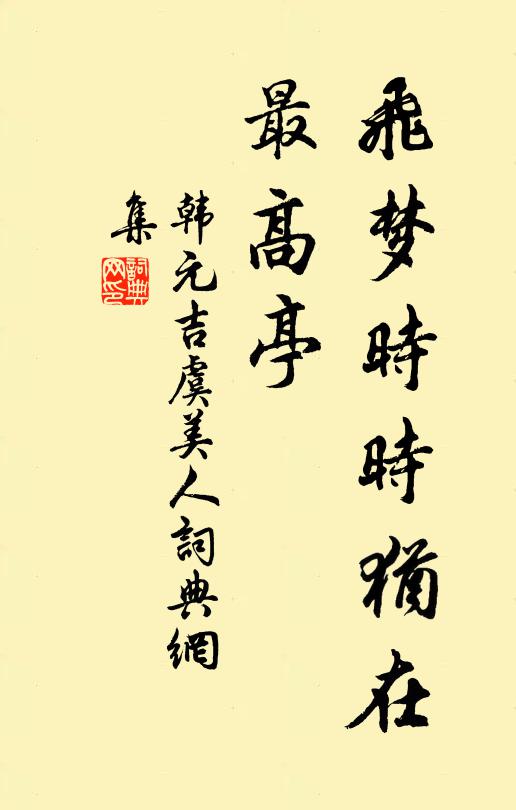 飛梦時時猶在
最髙亭
韩元吉虞美人詞典網
集
詞典網印